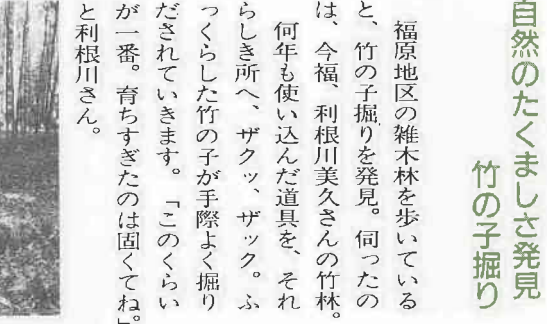 自然のたくましさ発見
竹の子掘り
福原地区の雑木林を歩いている
と、竹の子掘りを発見。伺ったの
は、今福、利根川美久さんの竹林。
何年も使い込んだ道具を、それ
らしき所へ、ザクッ、ザック。ふ
っくらした竹の子が手際よく掘り
だされていきます。「このくらい
が一番。育ちすぎたのは固くてね。」
と利根川さん。